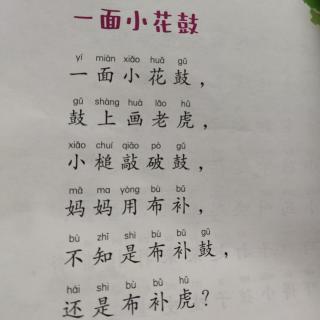 一面小花鼓
yí miàn xiǎo huā gǔ
一面小花鼓，
gǔ shàng huà lǎo hǔ
鼓上画老虎，
xiǎo chuí qiāo pò gǔ
小槌敲破鼓，
mā ma yòng bù bǔ
妈妈用布补，
bù zhī shì bù bǔ gǔ
不知是布补鼓，
hái shì bù bǔ hǔ
还是布补虎？